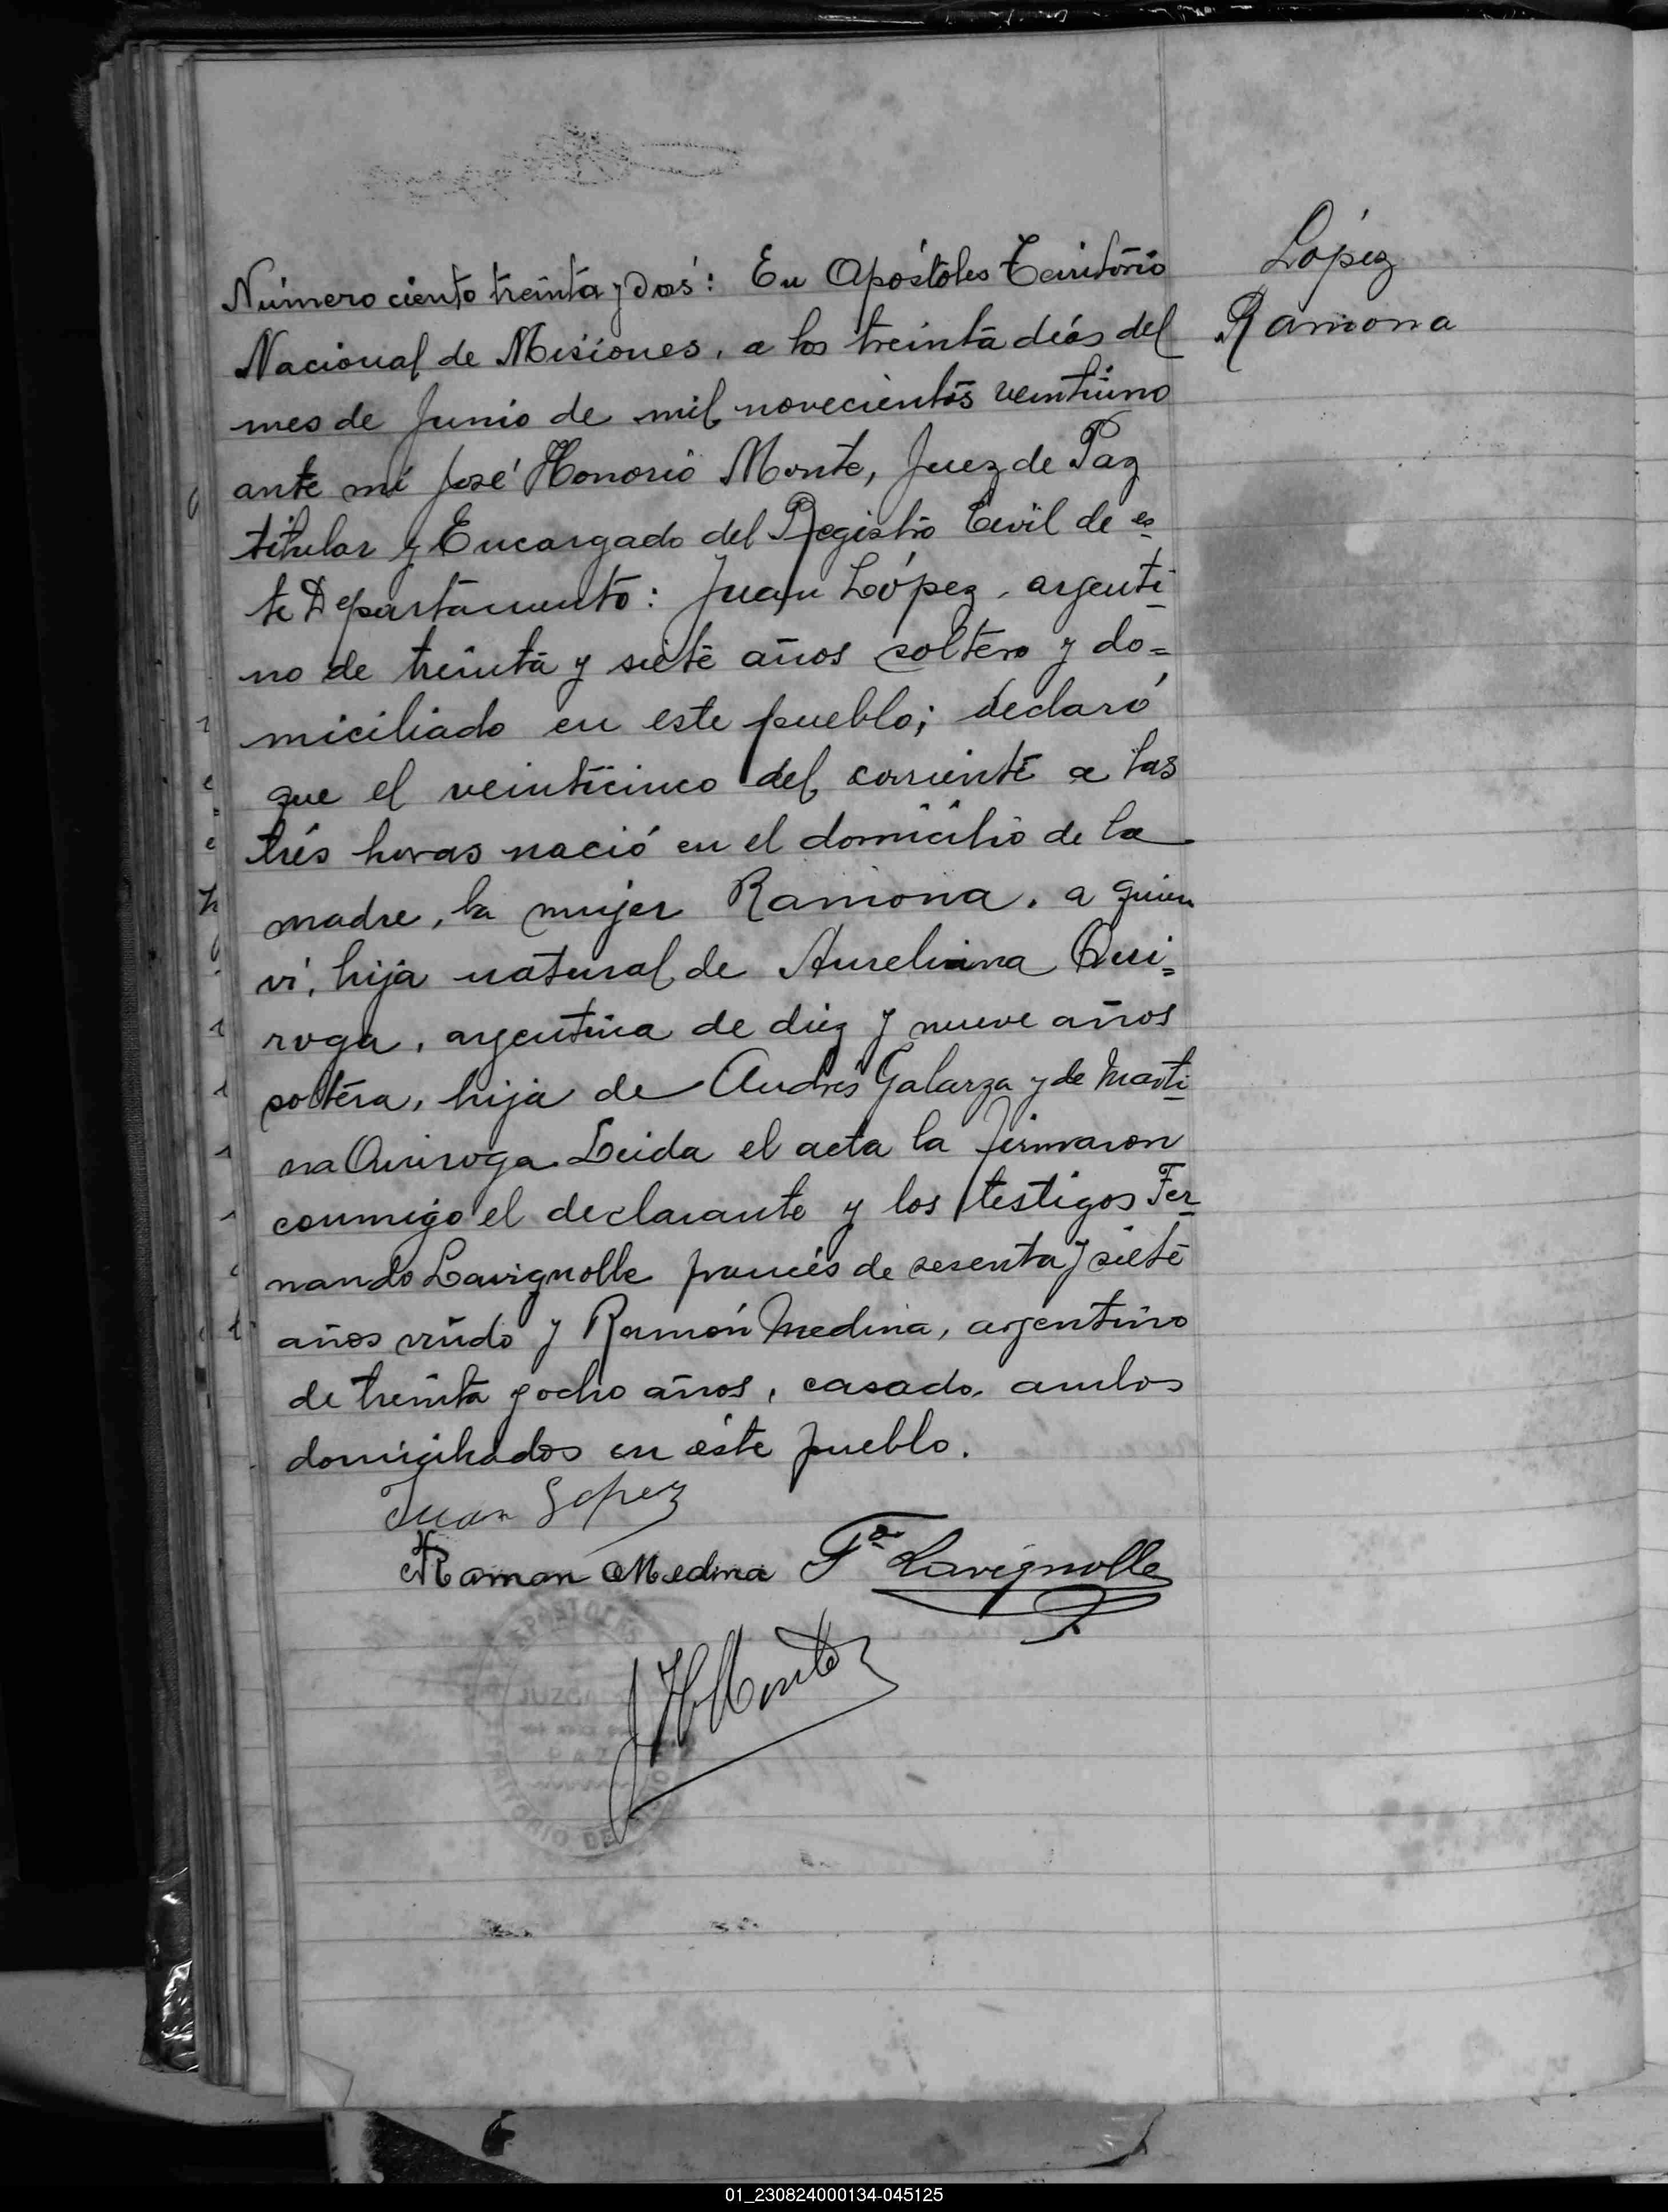 López
Ramona
Número ciento treinta y dos: En Apóstoles Territorio
Nacional de Misiones, a los treinta días del
mes de Junio de mil novecientos veintiuno
ante mi José Honorio Monte, Juez de Paz
titular y Encargado del Registro Civil de es
te Departamento: Juan López, argenti
no de treinta y siete años soltero y do=
miciliado en este pueblo; declaró
que el veinticinco del corriente a las
trés horas nació en el domicilio de la
madre, la mujer Ramona, a quien
vi, hija natural de Aureliana Qui=
roga, argentina de diez y nueve años
soltera, hija de Andrés Galarza y de Marti
na Quiroga. Leida el acta la firmaron
conmigo el declarante y los testigos Fer
nando Lavignolle francés de sesenta y siete
años viudo y Ramón Medina, argentino
de treinta y ocho años, casado, ambos
domiciliados en éste pueblo.
Juan Lopez
Ramon Medina Fdo Lavignolle
JHMonte
APOSTOLES
JUZGADO
PAZ
TERRITORIO DE
01_230824000134-045125